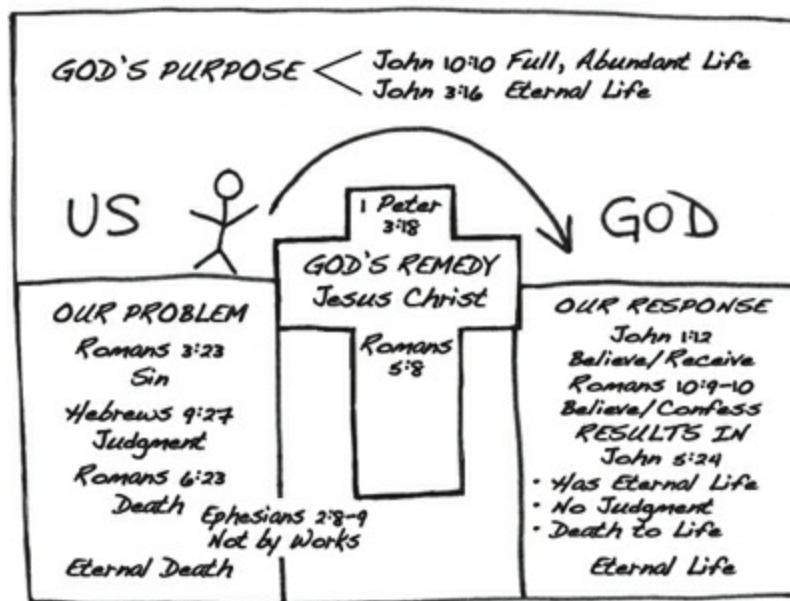 GOD'S PURPOSE
John 10:10 Full, Abundant Life
John 3:16 Eternal Life
US
GOD
1 Peter
3:18
GOD'S REMEDY
Jesus Christ
Romans
5:8
OUR PROBLEM
Romans 3:23
Sin
Hebrews 9:27
Judgment
Romans 6:23
Death
Ephesians 2:8-9
Not by Works
Eternal Death
OUR RESPONSE
John 1:12
Believe/Receive
Romans 10:9-10
Believe/Confess
RESULTS IN
John 5:24
· Has Eternal Life
· No Judgment
· Death to Life
Eternal Life